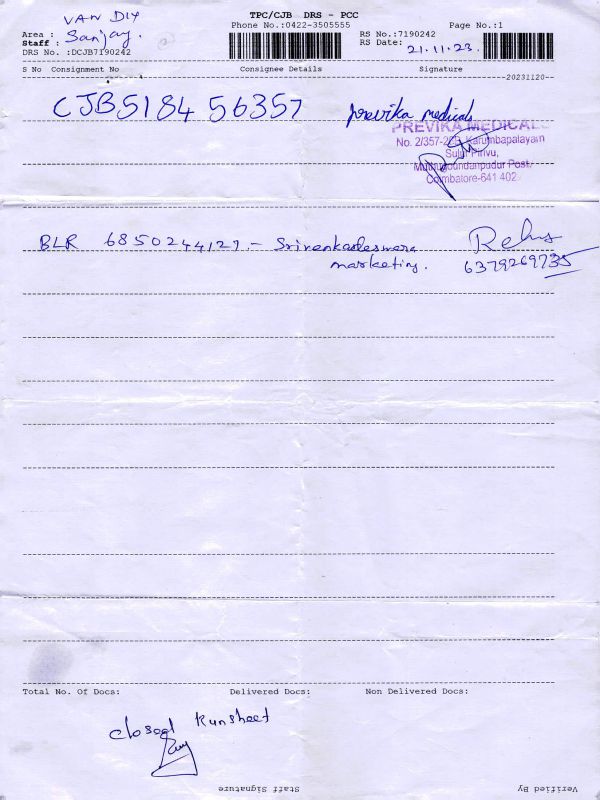 VAN DIY
TPC/CJB DRS - PCC
Phone No.:0422-3505555
Page No.:1
Area :
Staff : Sanjay.
RS No.:7190242
RS Date: 21.11.23.
DRS No. :DCJB7190242
S No Consignment No Consignee Details Signature
20231120
CJB5184 56357 previka medicals
PREVIKA MEDICALS
No. 2/357-20B, Karumbapalayam
Sulur Pirivu,
Muthugoundanpudur Post,
Coimbatore-641 402
BLR 6850244129 - Srivenkadeswara
marketing.
6379269735
Total No. Of Docs: Delivered Docs: Non Delivered Docs:
closed Runsheet
Staff Signature
Verified By